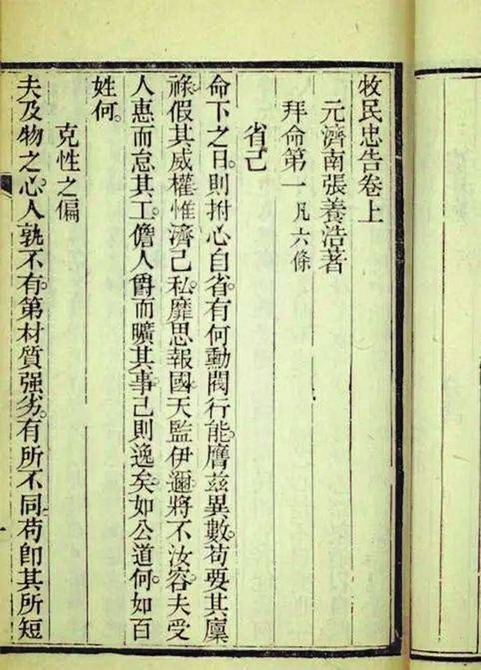 牧民忠告卷上
元濟南張養浩著
拜命第一凡六條
省己
命下之日。則拊心自省。有何勳閥行能。膺茲異數。苟要其廩
祿。假其威權。惟濟己私。靡思報國。天監伊邇。將不汝容。夫受
人惠而怠其工。儋人爵而曠其事。己則逸矣。如公道何。如百
姓何。
克性之偏
夫及物之心。人孰不有。第材質强劣。有所不同。苟卽其所短